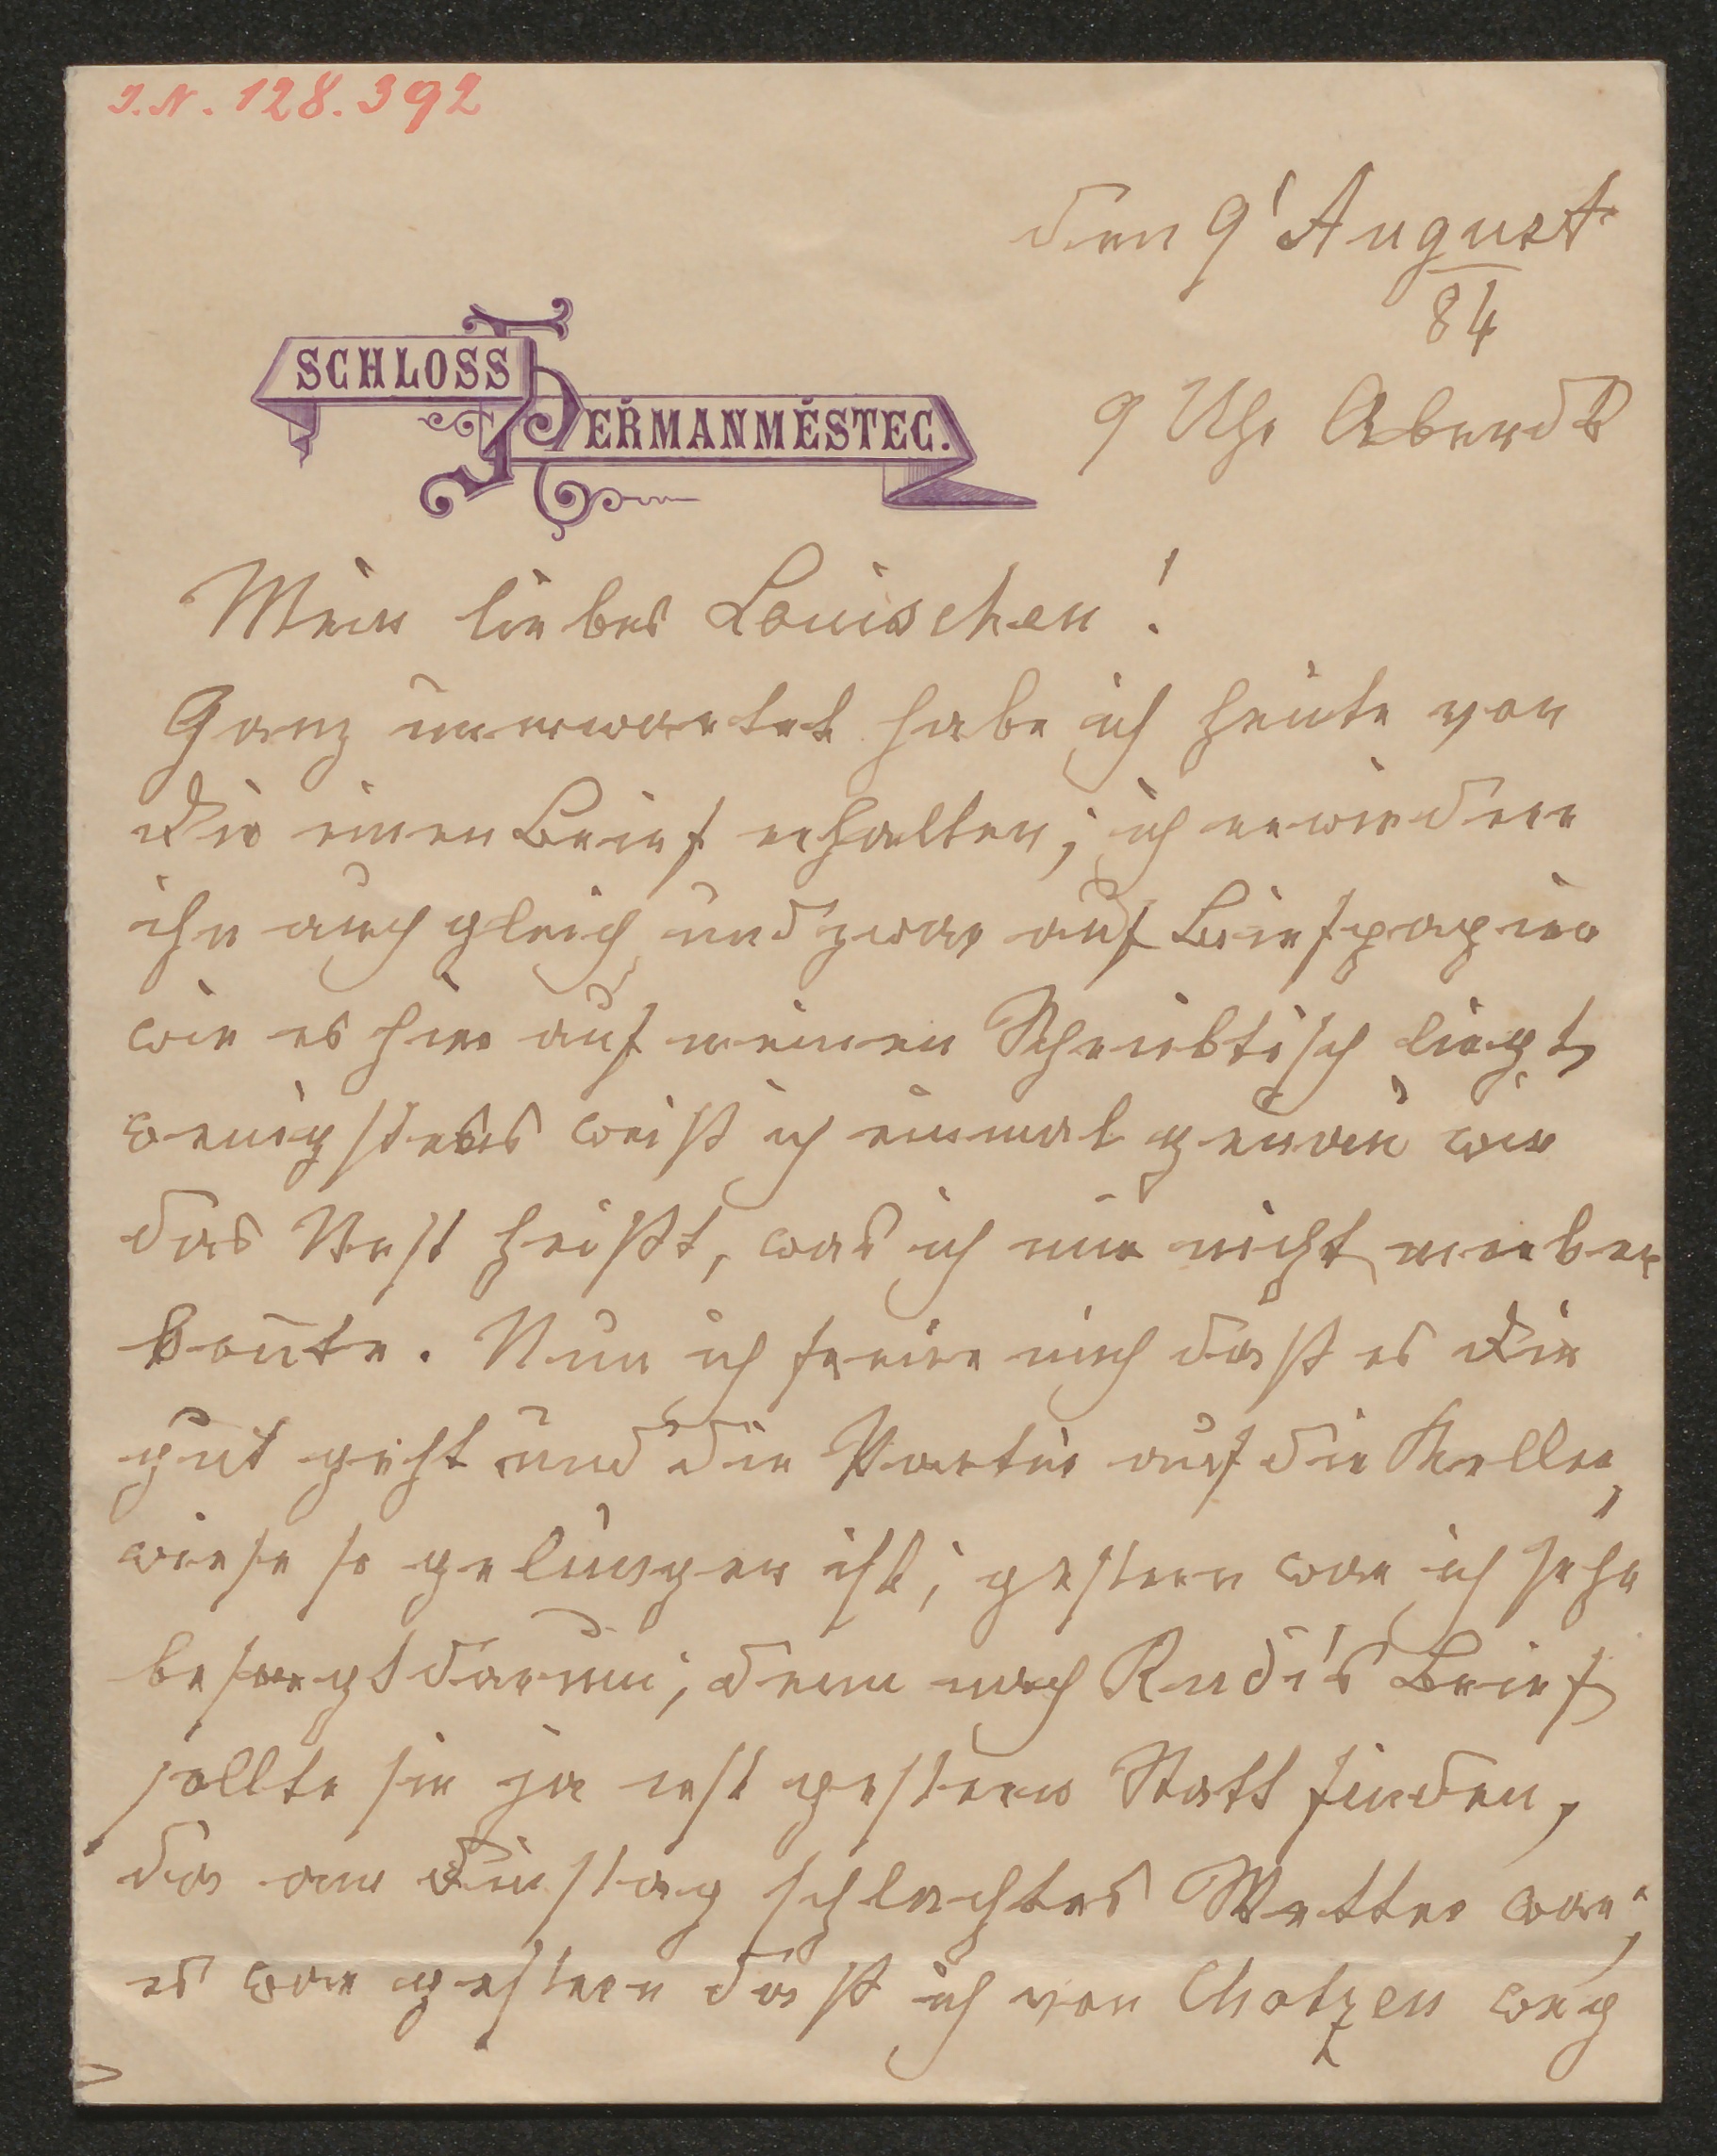 I.N. 128.392
den 9' August
84
SCHLOSS
HEŘMANMĚSTEC.
9 Uhr Abends
Mein liebes Louischen!
Ganz unerwartet habe ich heute von
Dir einen Brief erhalten; ich erwiedere
ihn auch gleich und zwar auf Briefpapier
wie es hier auf meinen Schreibtisch liegt,
wenigstens weiß ich einmal genau wie
das Nest heißt, was ich mir nicht merken
kon̄te. Nun ich freue mich daß es Dir
gut geht und die Partie auf die Keller,
wiese so gelungen ist; gestern war ich sehr
besorgt darum; denn nach Rudi's Brief
sollte sie ja erst gestern Statt finden,
da am Dinstag schlechtes Wetter war;
es war gestern daß ich von Chotzen weg